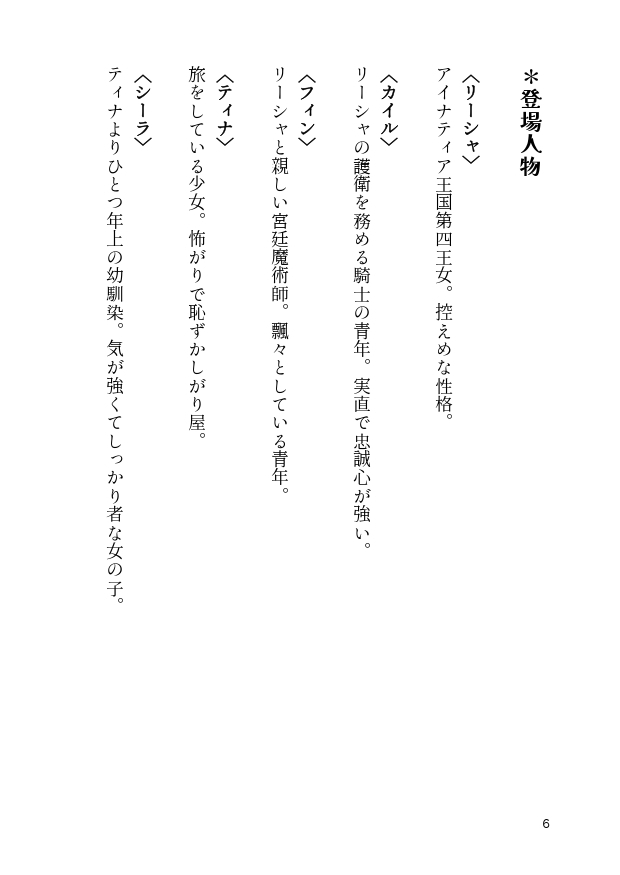 ＊登場人物
〈リーシャ〉
アイナティア王国第四王女。控えめな性格。
〈カイル〉
リーシャの護衛を務める騎士の青年。実直で忠誠心が強い。
〈フィン〉
リーシャと親しい宮廷魔術師。飄々としている青年。
〈ティナ〉
旅をしている少女。怖がりで恥ずかしがり屋。
〈シーラ〉
ティナよりひとつ年上の幼馴染。気が強くてしっかり者な女の子。
6